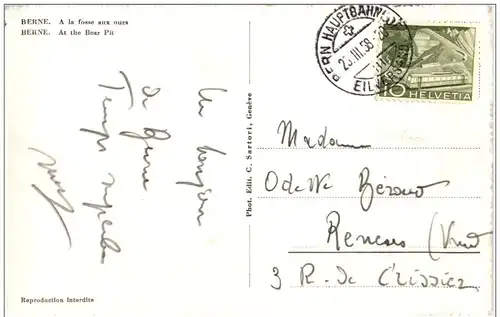 BERNE. A la fosse aux ours
BERNE. At the Bear Pit
Un bonjour
de Berne
Temps superbe
Phot. Edit. C. Sartori, Genève
BERN HAUPTBAHNHOF
25.III.58
EILVERSAND
10 HELVETIA
Madame
Odette
Renens (Vaud
3 R. de Crissier
Reproduction interdite